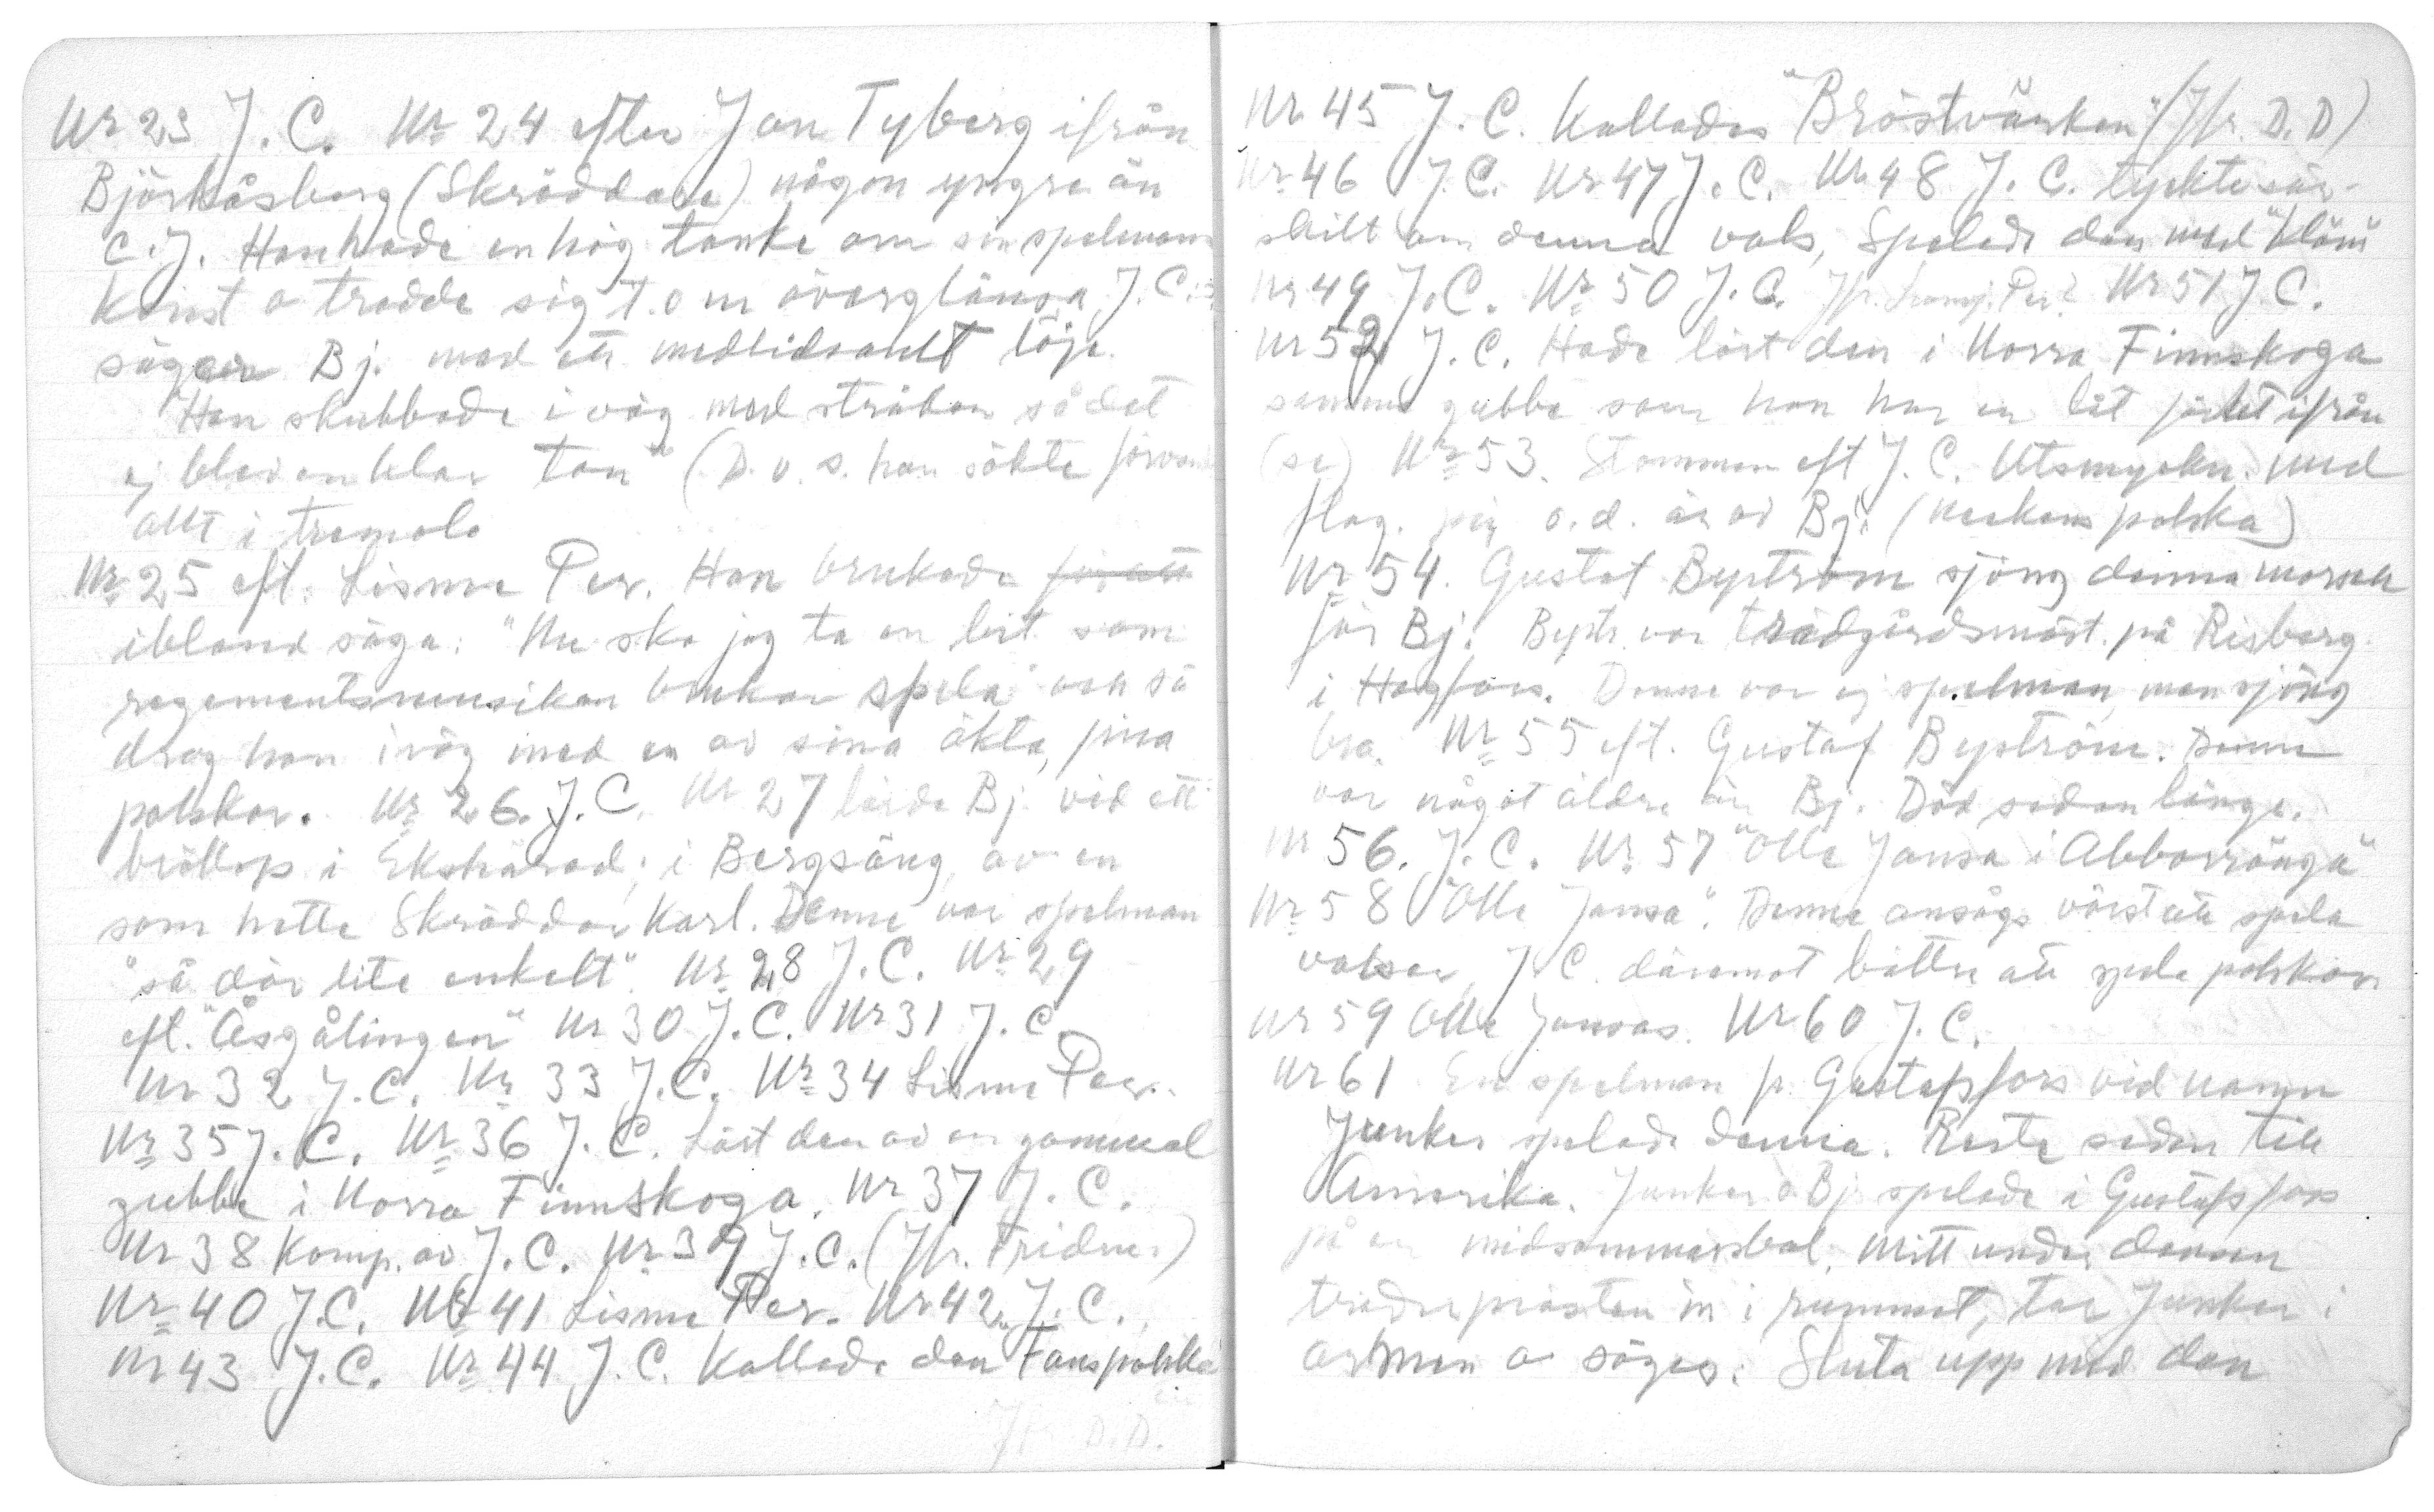 Nr 23 J. C. Nr 24 efter Jan Tyberg ifrån
Björkåsberg (Skräddare) någon yngre än
C. J. Han hade en hög tanke om sin spelmans
konst o trodde sig t. o m överglänsa J. C.
säger Bj. med ett medlidsamt löje.
"Han skubbade iväg med stråken så det
ej blev en klar ton" (D. v. s. han sökte
allt i tremolo
Nr 25 eft. Lisme Per. Han brukade för att
ibland säga: "Nu ska jag ta en bit som
regementsmusiken brukar spela" och så
drog han iväg med en av sina äkta, fina
polskor. Nr 26. J. C. Nr 27 lärde Bj. vid ett
bröllop i Ekshärad, i Bergsäng av en
som hette Skräddar Karl. Denne var spelman
"så där lite enkelt". Nr 28 J. C. Nr 29
eft. "Åsgålingen" Nr 30 J. C. Nr 31 J. C
Nr 32 J. C. Nr 33 J. C. Nr 34 Lisme Per.
Nr 35 J. C. Nr 36 J. C. Lärt den av en gammal
gubbe i Norra Finnskoga. Nr 37 J. C.
Nr 38 Komp. av J. C. Nr 39 J. C. (Jfr. Fridner)
Nr 40 J. C. Nr 41 Lisme Per. Nr 42 J. C.
Nr 43 J. C. Nr 44 J. C. Kallade den Fanspolska
Jfr D. D.
Nr 45 J. C. Kallades "Bröstvärken" (Jfr. D. D)
Nr 46 J. C. Nr 47 J. C. Nr 48 J. C. tyckte sär-
skilt om denna vals, Spelade den med "kläm"
Nr 49 J. C. Nr 50 J. C. Jfr. Per? Nr 51 J C.
Nr 52 J. C. Hade lärt den i Norra Finnskoga
samme gubbe som han har en låt förut ifrån
(se) Nr 53. Stommen eft J. C. Utsmyckn. med
flag. o. d. är av Bj. (Neckens polska)
Nr 54. Gustaf Byström sjöng denna marsch
för Bj. Bystr. var trädgårdsmäst. på Risberg
i Hagfors. Denne var ej spelman, men sjöng
bra. Nr 55 eft. Gustaf Byström. Denne
var något äldre än Bj. Död sedan länge.
Nr 56. J. C. Nr 57 "Olle Jansa i Abborränga"
Nr 58 "Olle Jansa". Denne ansågs värst att spela
valser, J. C. däremot bättre att spela polskor
Nr 59 Olle Jansas. Nr 60 J. C.
Nr 61 En spelman fr. Gustafsfors vid namn
Junker spelade denna. Reste sedan till
Amerika. Junker o Bj. spelade i Gustafsfors
på en midsommarsbal. Mitt under dansen
träder prästen in i rummet, tar Junker i
armen o säger: Sluta upp med den